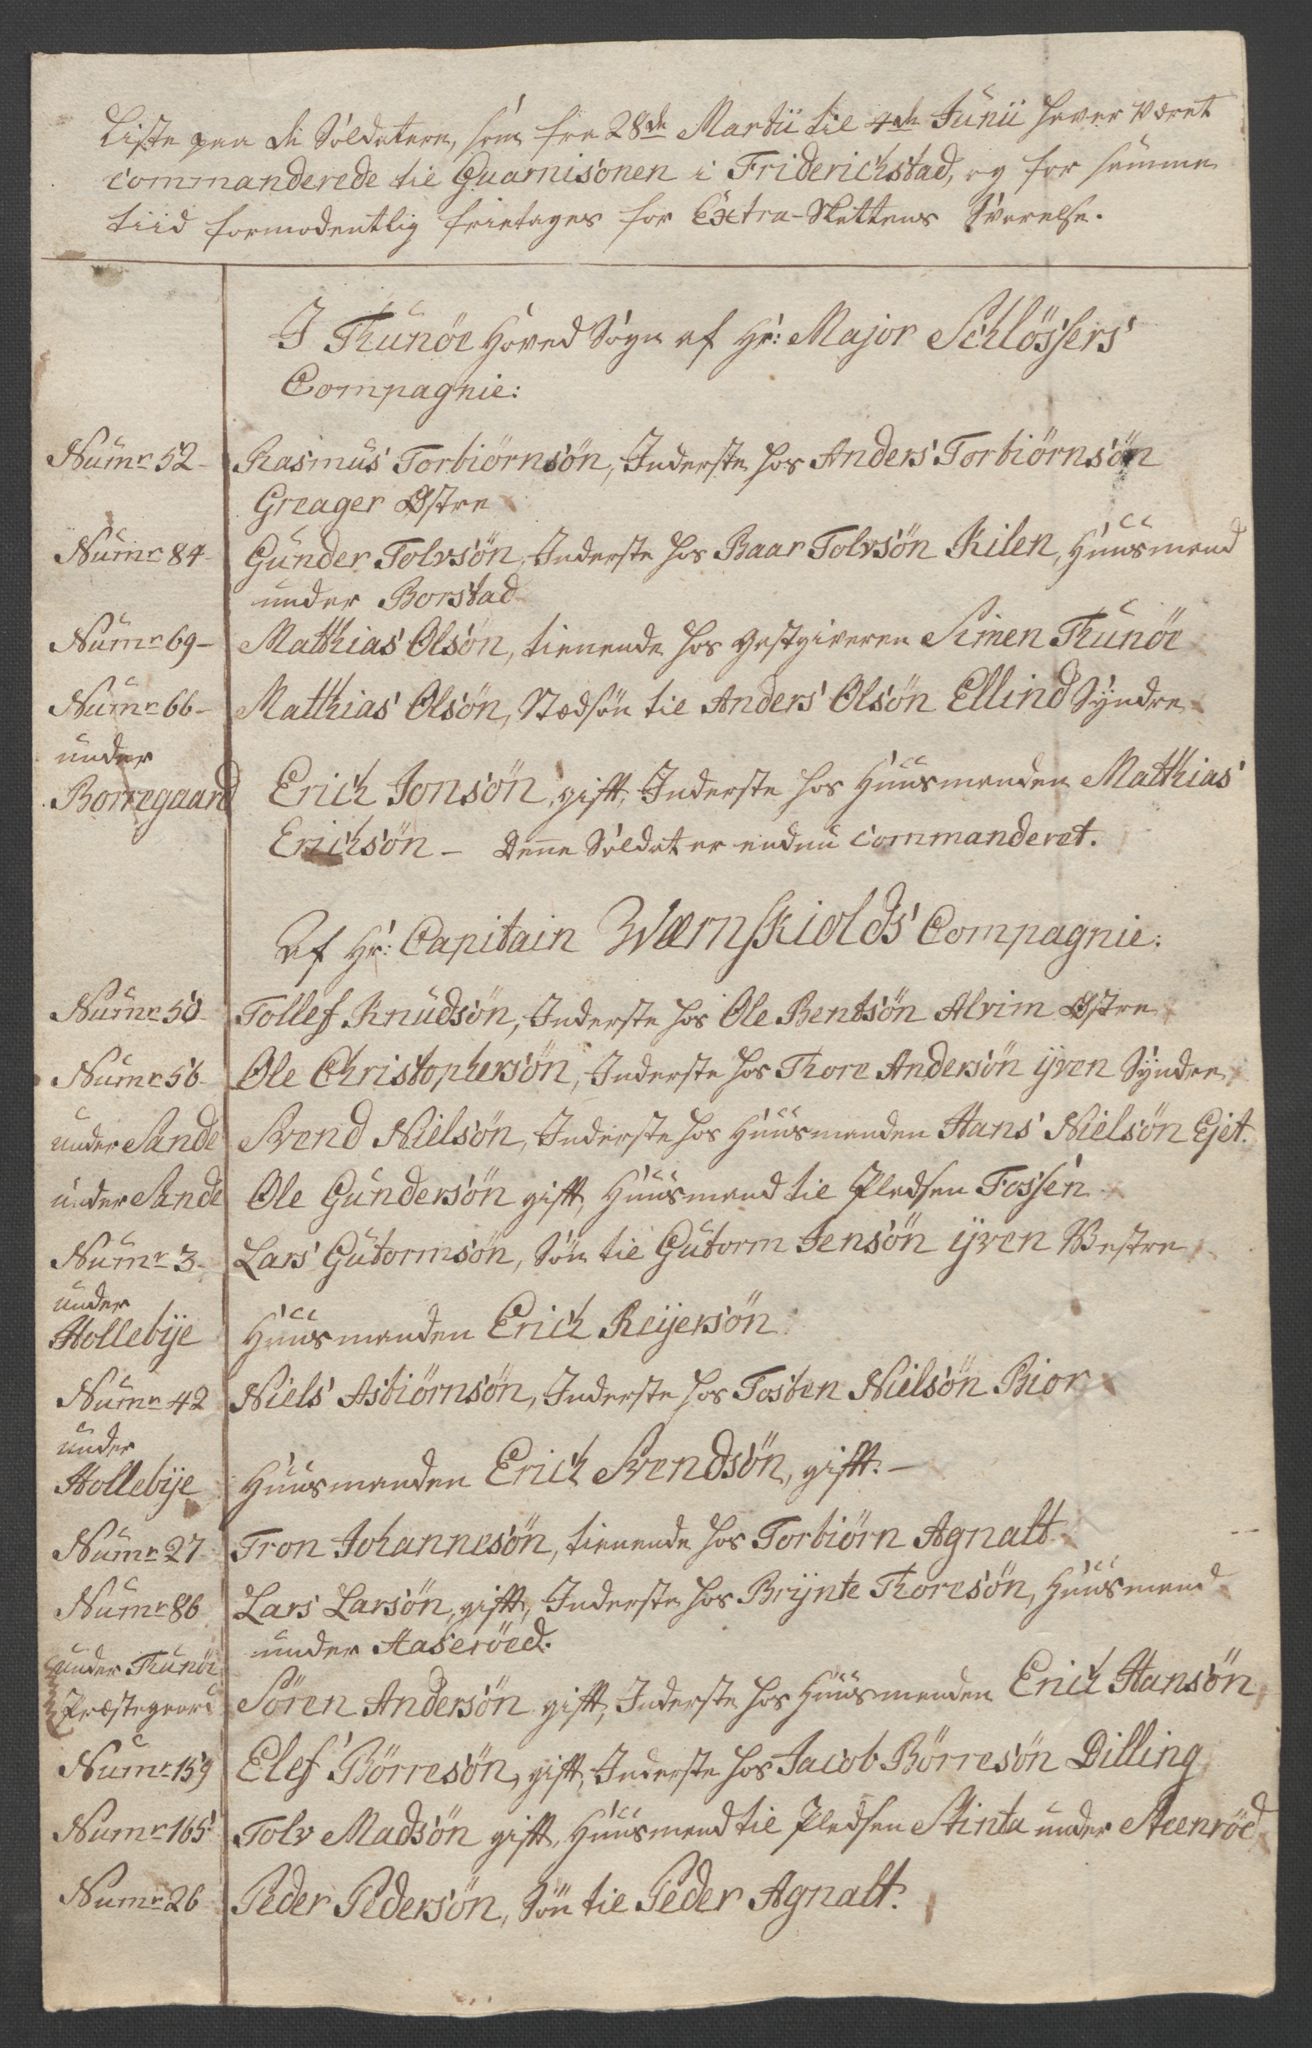 Liste paa de Soldatere, som fra 28de Martii til 4de Junii haver været
commanderede til Guarnisonen i Friderichstad, og for samme
tiid formodentlig fritages for Extra-Skattens Svarelse.
I Thunöe Hoved Sogn af Hr: Major Schlössers
Compagnie:
Numr 52 Rasmus Torbiörnsön, Inderste hos Anders Torbiörnsön
Greager Østre
Numr 84 Gunder Tolvsön, Inderste hos Baar Tolvsön Kilen, Huusmand
under Borstad
Numr 69 Matthias Olsön, tienende hos Gestgiveren Simen Thunöe
Numr 66 Matthias Olsön, Stedsön til Anders Olsön Ellind Syndre
under
Borregaard Erich Jonsön, gift, Inderste hos Huusmanden Matthias
Erichsön - Denne Soldat er endnu commanderet.
Af Hr: Capitain Wærnskiolds Compagnie:
Numr 50 Tollef Knudsön, Inderste hos Ole Bentsön Alvim Østre
Numr 56 Ole Christophersön, Inderste hos Thore Andersön Yven Syndre
under Sande Svend Nielsön, Inderste hos Huusmanden Hans Nielsön Ejet.
under Sande Ole Gundersön gift, Huusmand til Pladsen Fossen
Numr 3 Lars Gutormsön, Sön til Gutorm Jensön Yven Vestre
under
Hollebye Huusmanden Erich Reijersön
Numr 42 Niels Asbiörnsön, Inderste hos Tosten Nielsön Bior
under
Hollebye Huusmanden Erich Svendsön, gift. -
Numr 27 Tron Johannesön, tienende hos Torbiörn Agnalt
Numr 86 Lars Larsön, gift, Inderste hos Brynte Thoresön, Huusmand
under Aaseröed.
under Thunöe
Præstegaard Sören Andersön gift, Inderste hos Huusmanden Erich Hansön
Numr 159 Elef Börresön, gift, Inderste hos Jacob Börresön Dilling
Numr 165 Tolv Madsön gift, Huusmand til Pladsen Stinta under Steenröd
Numr 26 Peder Pedersön, Sön til Peder Agnalt.